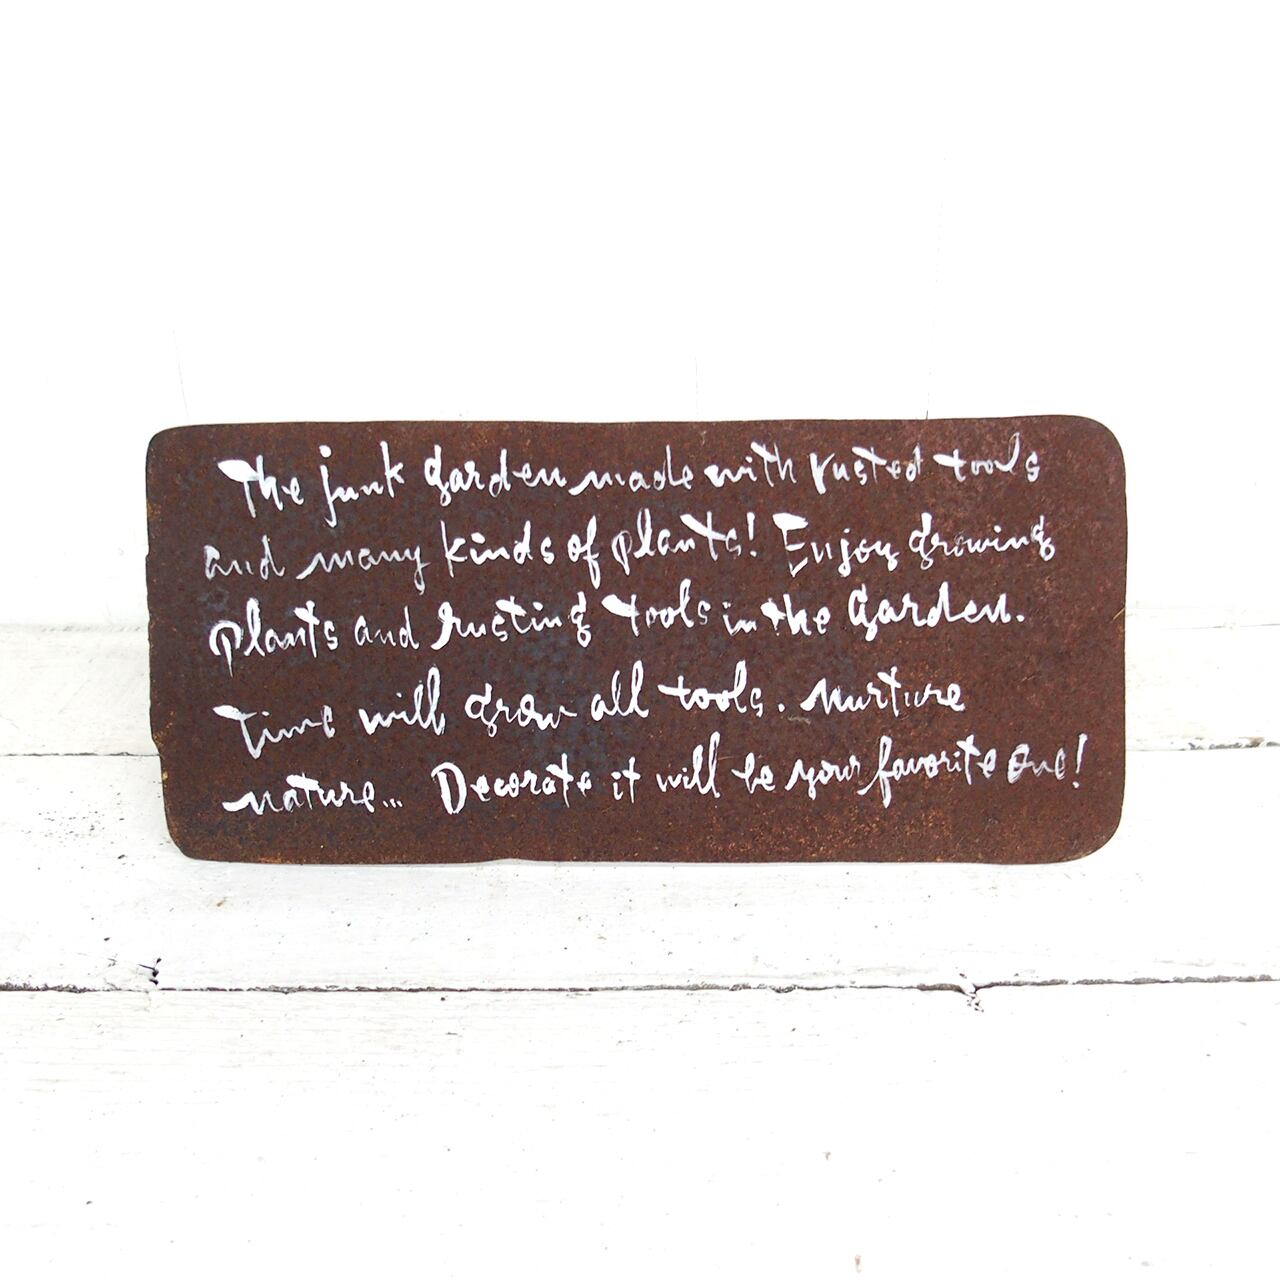 The junk garden made with rusted tools
and many kinds of plants! Enjoy growing
plants and rusting tools in the garden.
Time will grow all tools. nurture
nature... Decorate it will be your favorite one!